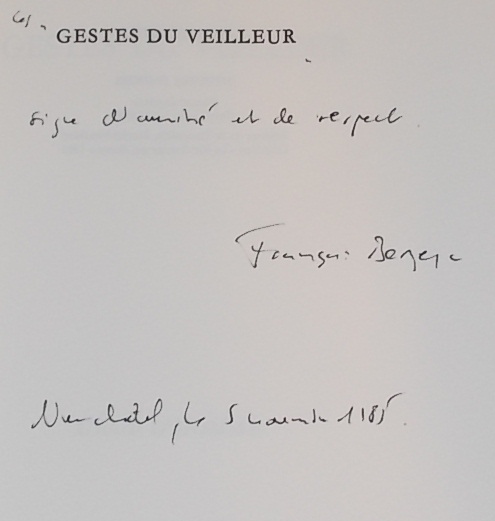 Ces "GESTES DU VEILLEUR"
signe d'amitié et de respect.
François Berger
Neuchâtel, le 5 novembre 1985.